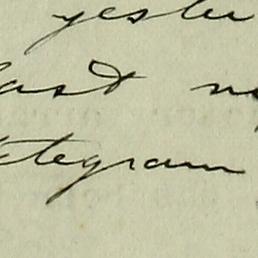 yester
last n
telegram